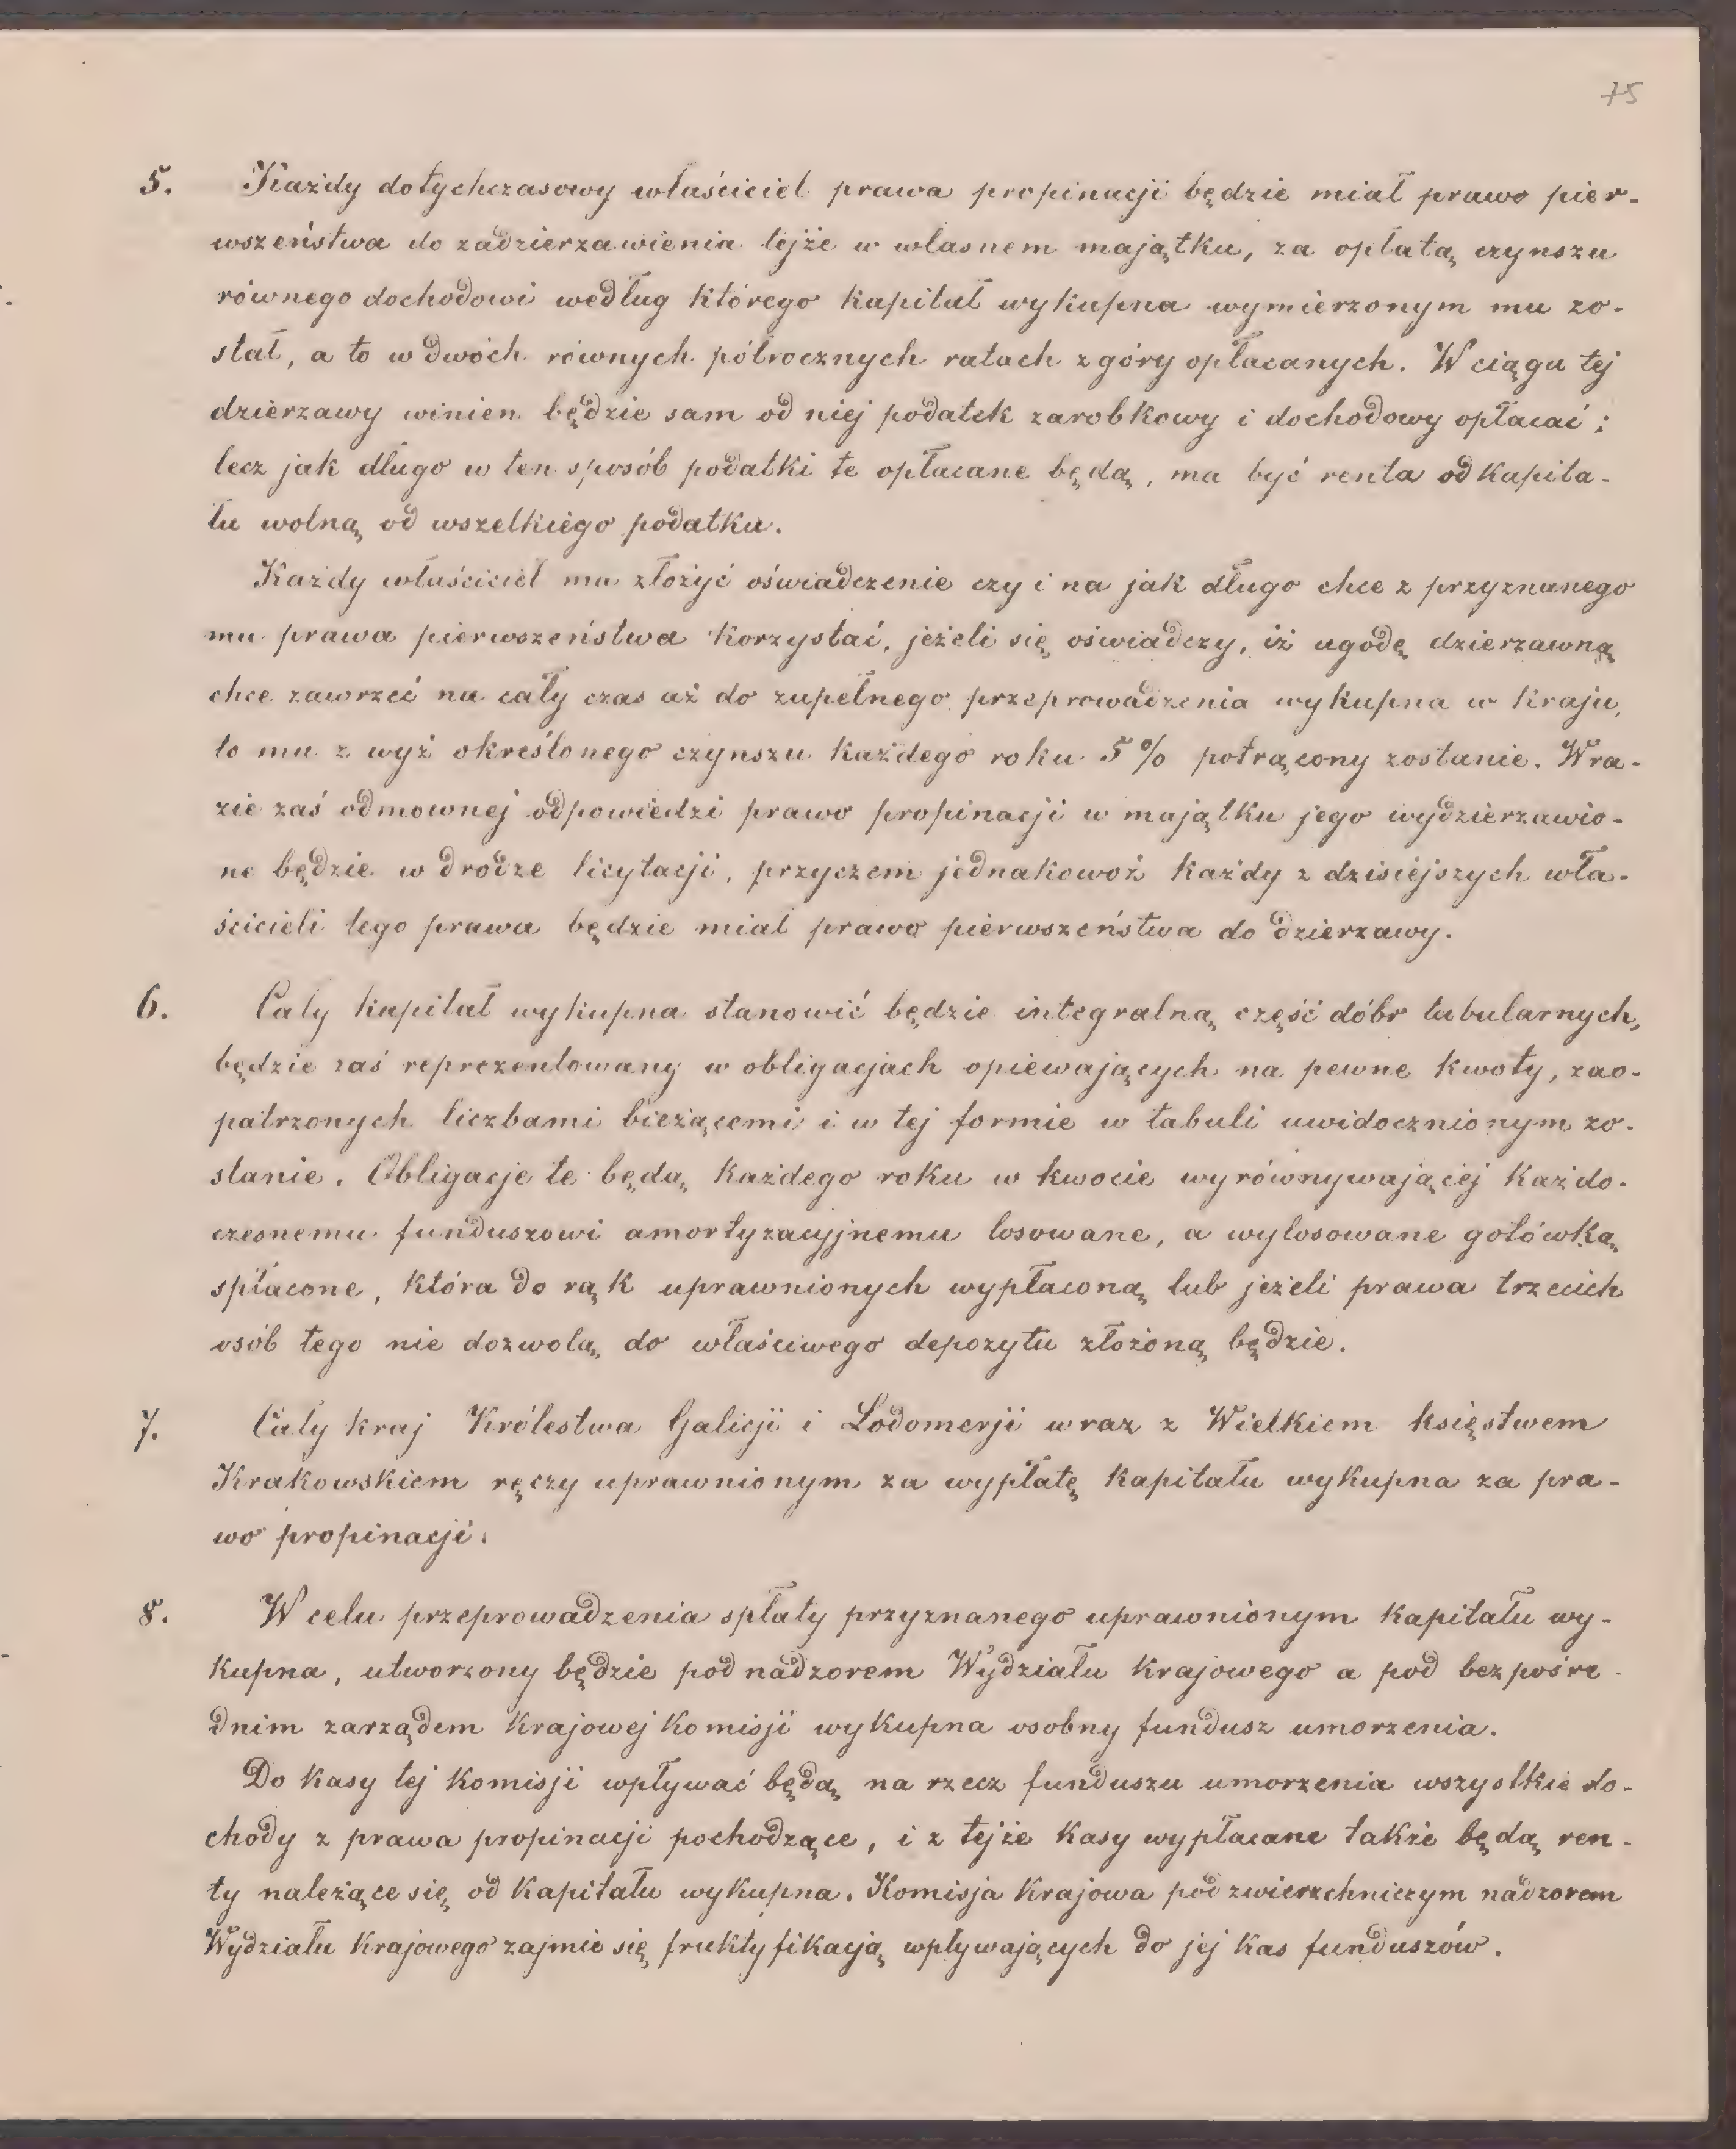 75
5. Każdy dotychczasowy właściciel prawa propinacji będzie miał prawo pier-
wszeństwa do zadzierzawienia tejże w własnem majątku, za opłatą czynszu
równego dochodowi według którego kapitał wykupna wymierzonym mu zo-
stał, a to w dwóch równych półrocznych ratach z góry opłacanych. W ciągu tej
dzierzawy winien będzie sam od niej podatek zarobkowy i dochodowy opłacać;
lecz jak długo w ten sposób podatki te opłacane będą, ma być renta od kapita-
łu wolną od wszelkiego podatku.
Każdy właściciel ma złożyć oświadczenie czy i na jak długo chce z przyznanego
mu prawa pierwszeństwa korzystać, jeżeli się oświadczy, iż ugodę dzierzawną
chce zawrzeć na cały czas aż do zupełnego przeprowadzenia wykupna w kraju,
to mu z wyż określonego czynszu każdego roku 5% potrącony zostanie. W ra-
zie zaś odmownej odpowiedzi prawo propinacji w majątku jego wydzierzawio-
ne będzie w drodze licytacji, przyczem jednakowoż każdy z dzisiejszych wła-
ścicieli tego prawa będzie miał prawo pierwszeństwa do dzierzawy.
6. Cały kapitał wykupna stanowić będzie integralną część dóbr tabularnych,
będzie zaś reprezentowany w obligacjach opiewających na pewne kwoty, zao-
patrzonych liczbami bieżącemi i w tej formie w tabuli uwidocznionym zo-
stanie. Obligacje te będą każdego roku w kwocie wyrównywającej każdo-
czesnemu funduszowi amortyzacyjnemu losowane, a wylosowane gotówką
spłacone, która do rąk uprawnionych wypłaconą lub jeżeli prawa trzecich
osób tego nie dozwolą, do właściwego depozytu złożoną będzie.
7. Cały kraj Królestwa Galicji i Lodomerji wraz z Wielkiem księstwem
Krakowskiem ręczy uprawnionym za wypłatę kapitału wykupna za pra-
wo propinacji.
8. W celu przeprowadzenia spłaty przyznanego uprawnionym kapitału wy-
kupna, utworzony będzie pod nadzorem Wydziału krajowego a pod bezpośre-
dnim zarządem krajowej komisji wykupna osobny fundusz umorzenia.
Do kasy tej komisji wpływać będą na rzecz funduszu umorzenia wszystkie do-
chody z prawa propinacji pochodzące, i z tejże kasy wypłacane także będą ren-
ty należące się od kapitału wykupna. Komisja krajowa pod zwierzchniczym nadzorem
Wydziału krajowego zajmie się fruktyfikacją wpływających do jej kas funduszów.